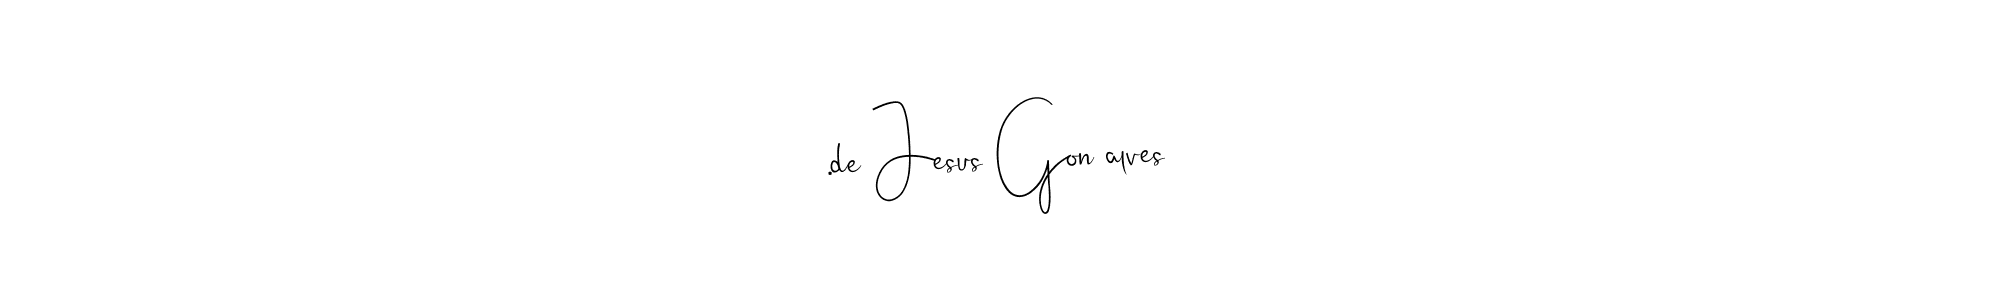 .de Jesus Gon alves